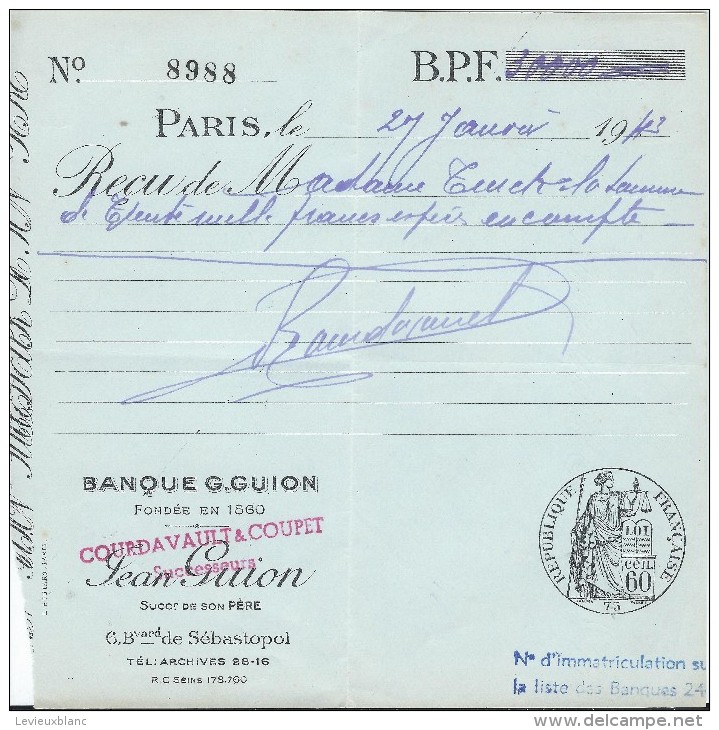 Nº 8988 B.P.F. 30000
PARIS, le 27 Janvier 1943
Reçu de Madame Turck la somme
de Trente mille francs espèces en compte
BANQUE G.GUION
FONDÉE EN 1860
COURDAVAULT & COUPET
Successeurs
Jean Guion
SUCCr DE SON PÈRE
6, Bvard de Sébastopol
TÉL: ARCHIVES 28-16
R.C. Seine 178.760
RÉPUBLIQUE FRANÇAISE
LOI
60
73
N° d'immatriculation su
la liste des Banques 24
Levieuxblanc
www.delcampe.net